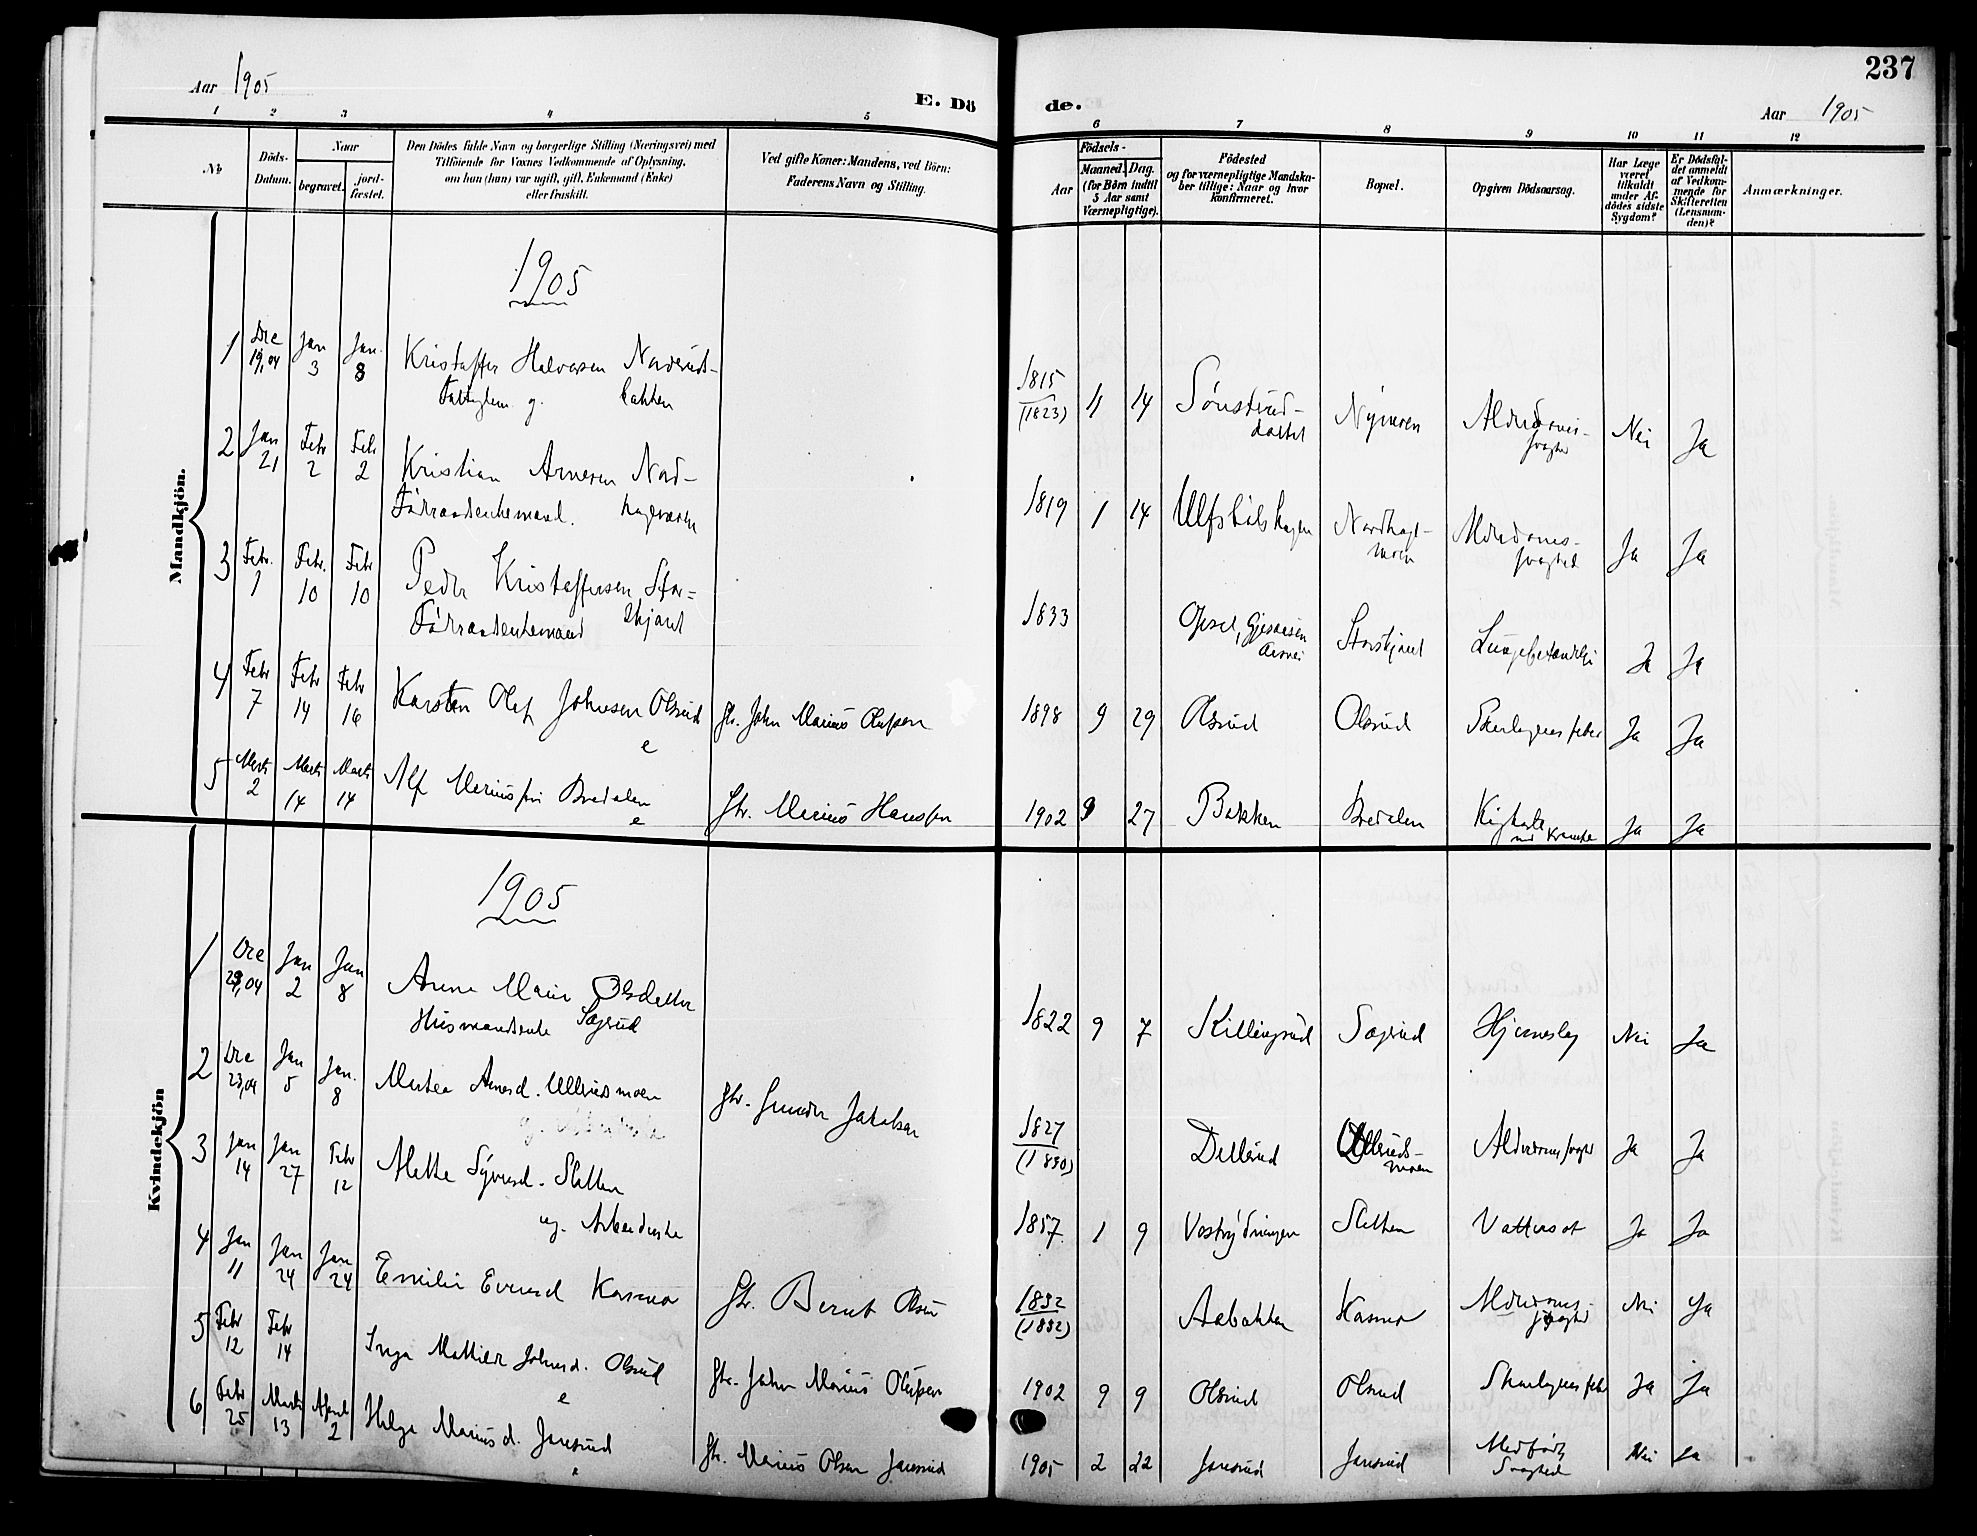 Aar 1905
E. Dö
de.
Aar 1905
237
1 2 3 4 5
6 7 8 9 10 11 12
No
Döds-
Datum.
Naar
begravet.
jord-
fæstet.
Den Dödes fulde Navn og borgerlige Stilling (Næringsvei) med
Tilföiende for Voxnes Vedkommende af Oplysning,
om han (hun) var ugift, gift, Enkemand (Enke)
eller fraskilt.
Ved gifte Koner: Mandens, ved Börn:
Faderens Navn og Stilling.
Födsels-
Aar
Maaned.
Dag.
(for Börn indtil
5 Aar samt
Værnepligtige).
Födested
og for værnepligtige Mandska-
ber tillige: Naar og hvor
konfirmeret.
Bopæl.
Opgiven Dödsaarsag.
Har Læge
været
tilkaldt
under Af-
dödes sidste
Sygdom?
Er Dödsfal-
det anmeldt
af Vedkom-
mende for
Skifteretten
(Lensman-
den)?
Anmærkninger.
Mandkjön.
1905
1 Dec 19,04 Jan 3 Jan. 8 Kristoffer Halvorsen Nordruds-
bakken
1815 (1823) 11 14 Nei Ja
2 Jan 21 Febr 2 Febr 2 Kristian Arnesen Nord-
Föderaadsenkemand.
1819 1 14 Ulfsbølshagen Alderdoms-
svaghed Ja Ja
3 Febr. 1 Febr. 10 Febr 10 Peder Kristoffersen Stor-
Föderaadsenkemand
1833 Ja Ja
4 Febr 7 Febr 14 Febr 16 Karsten Olaf Johnsen Olsrud
e
f. John Marius Olufsen 1898 9 29 Olsrud Olsrud Skarlagensfeber Ja Ja
5 Marts 2 Marts 14 Marts 14 Alf Mariussøn Bredalen
e
Marius Hanssen 1902 9 27 Bakken Bredalen Kighoste
med Krampe Ja Ja
Kvindekjön
1905
1 Dec 04 Jan 2 Jan 8 Anne Marie Olsdatter
Husmandsenke Sagrud
1822 9 7 Killingrud Sagrud Hjerneslag Nei Ja
2 Dec 23,04 Jan 5 Jan. 8 Martea Arnesd. Ullerudsmoen
Gunder Jakobsen 1827 (1830) Dellerud Ulleruds-
moen Ja Ja
3 Jan 14 Jan 27 Febr 12 Mette Syversd. Sletten
ug. Arbeiderske
1857 1 9 Sletten Vattersot Ja Ja
4 Jan 11 Jan 24 Jan 24 Emilie Evensd Kasmo
Bernt Olsen 1832 (1832) Aabakken Kasmo Alderdoms-
svaghed Nei Ja
5 Febr 12 Febr 14 Inga Mathilde Johnsd. Olsrud
e
John Marius Olufsen 1902 9 9 Olsrud Olsrud Skarlagensfeber Ja Ja
6 Febr 25 Marts 13 April 2 Helga Mariusd. Jansrud
e
Marius Olsen Jansrud 1905 2 22 Jansrud Jansrud Medfødt
Svaghed Nei Ja